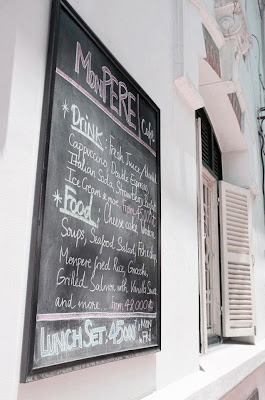 MonPERE Cafe
* Drink: Fresh Juice,
Cappuccino, Double Espresso,
Italian Soda, Strawberry
Ice Cream & more From
* Food: Cheese cake,
Soups, Seafood Salad, Fish & chip
Monpere fried Rice, Gnocchi,
Grilled Salmon with Vanilla Sauce
and more... from 48.000
LUNCH SET: 45000 MON FRI